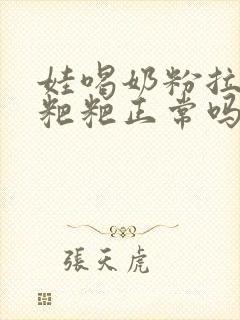 娃喝奶粉拉
粑粑正常吗
張天虎